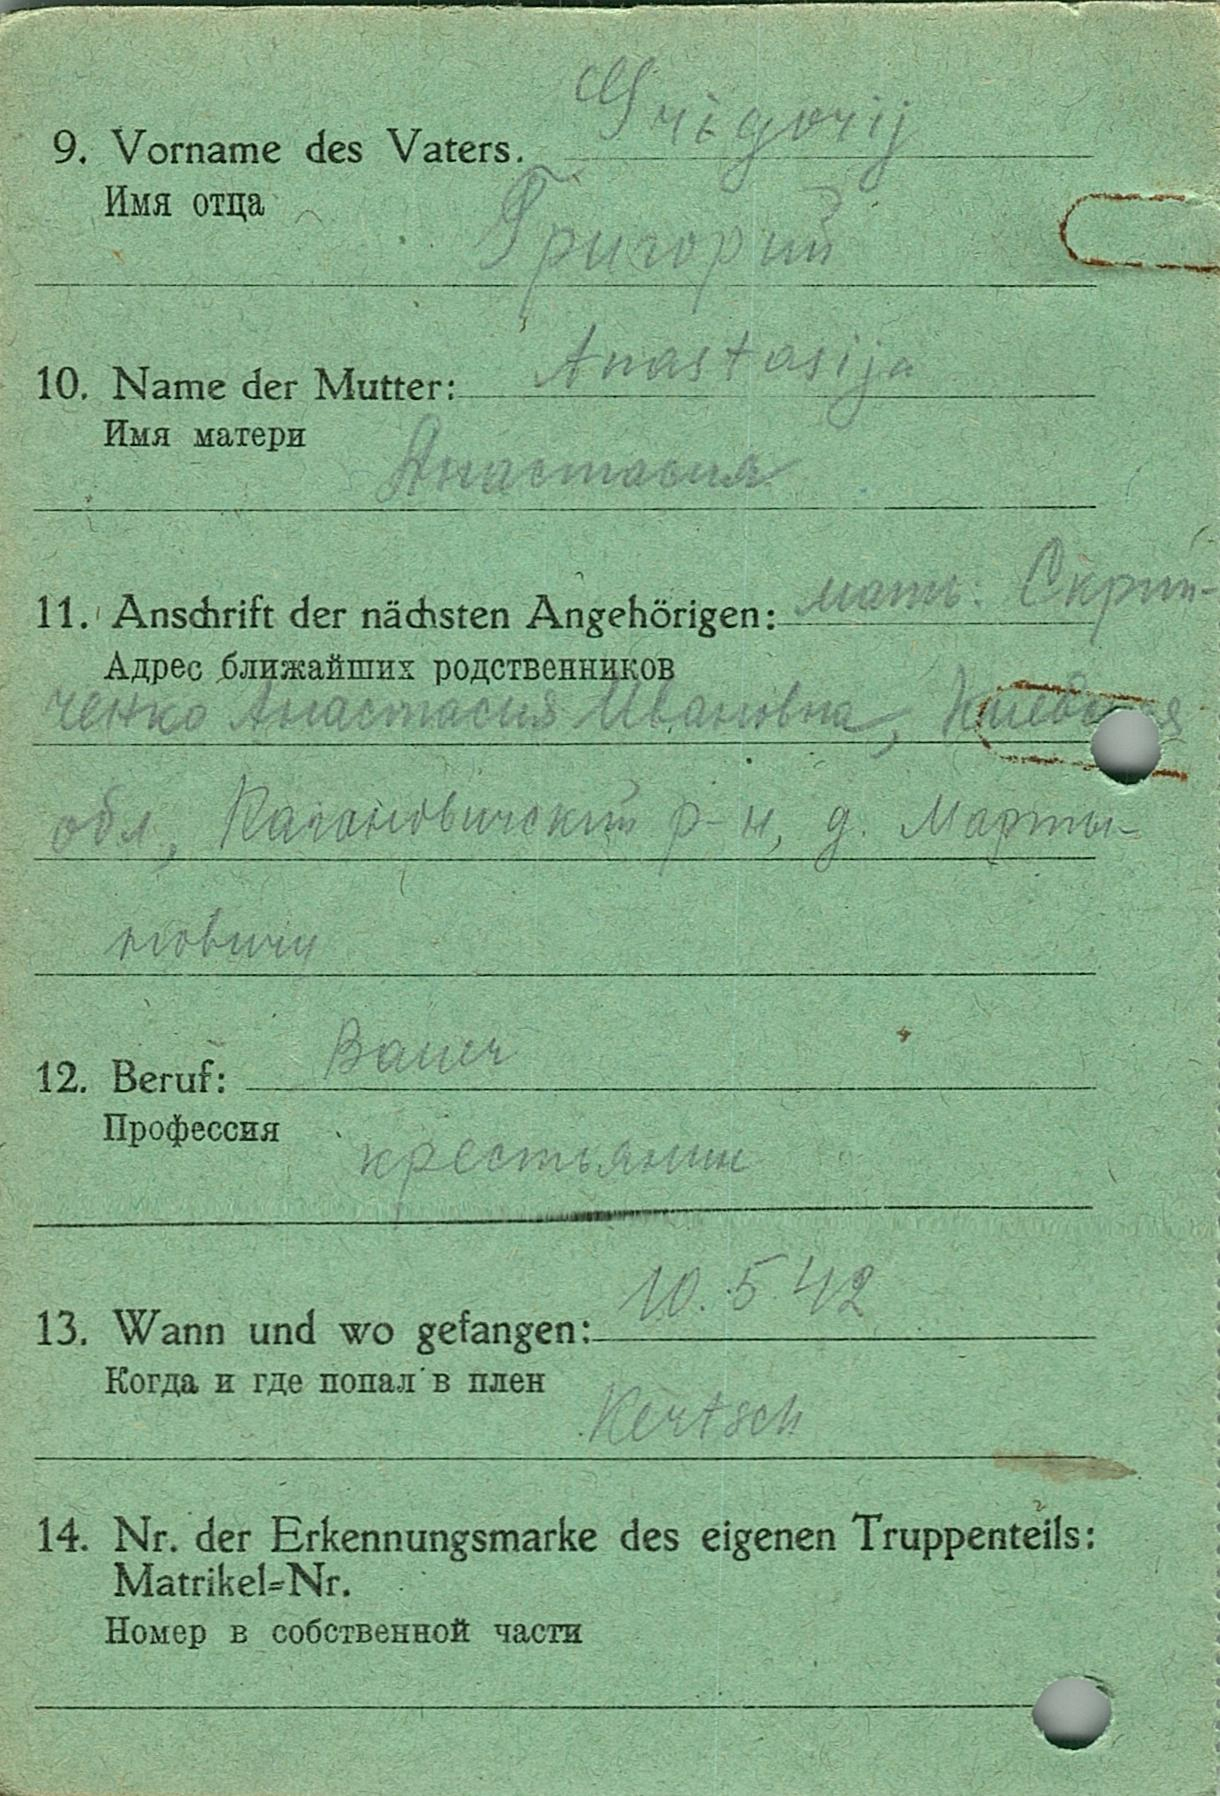 9. Vorname des Vaters. Grigorij
Имя отца
Григорий
10. Name der Mutter: Anastasija
Имя матери
Анастасия
11. Anschrift der nächsten Angehörigen: мать: Скрип-
Адрес ближайших родственников
ченко Анастасия Ивановна, Киевская
обл, Кагановичский р-н, д. Марты-
новичи
12. Beruf: Bauer
Профессия
крестьянин
13. Wann und wo gefangen: 10.5.42
Когда и где попал в плен
Kertsch
14. Nr. der Erkennungsmarke des eigenen Truppenteils:
Matrikel=Nr.
Номер в собственной части